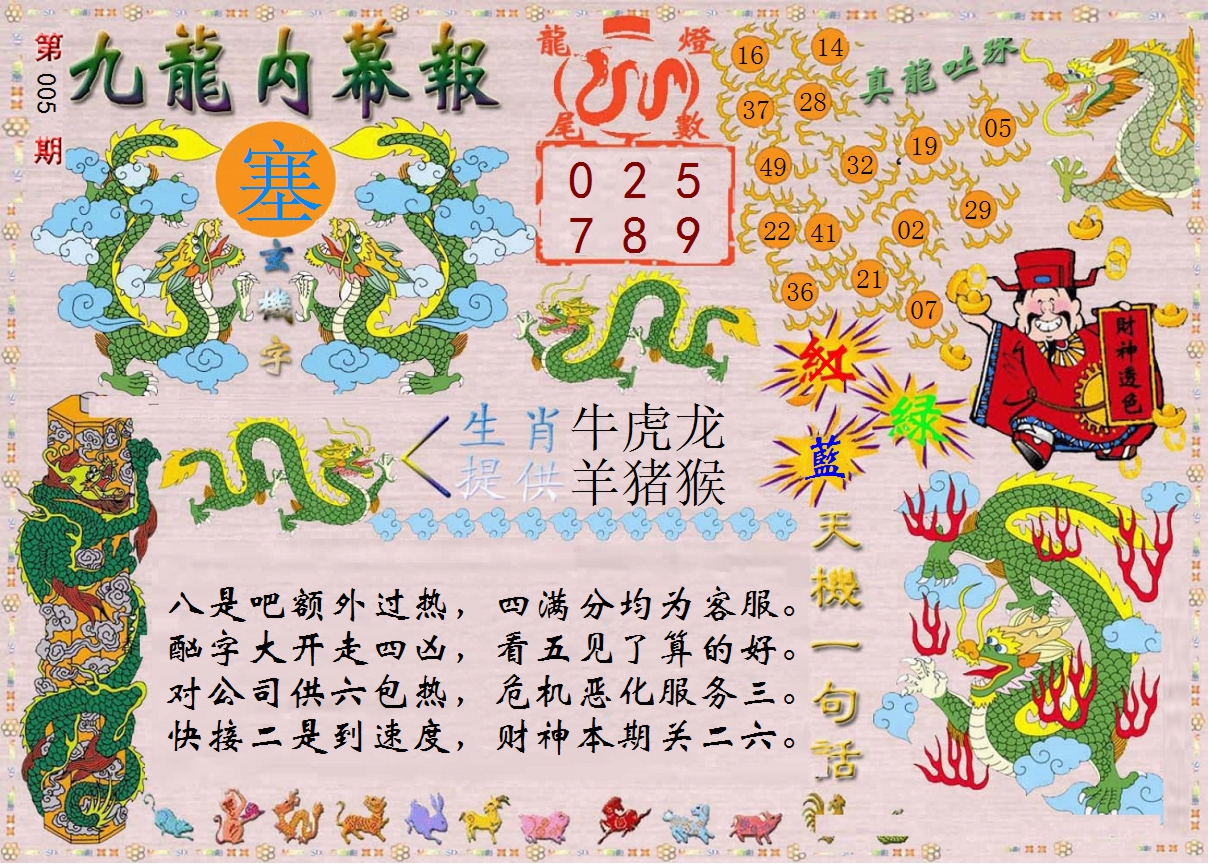 第005期
九龍内幕報
塞
玄機字
龍燈
尾數
0 2 5
7 8 9
真龍吐珠
16
14
37
28
49
32
19
05
22
41
02
29
36
21
07
財神透色
紅
綠
藍
生肖提供
牛虎龙
羊猪猴
天機一句話
八是吧额外过热，四满分均为客服。
酗字大开走四凶，看五见了算的好。
对公司供六包热，危机恶化服务三。
快接二是到速度，财神本期关二六。